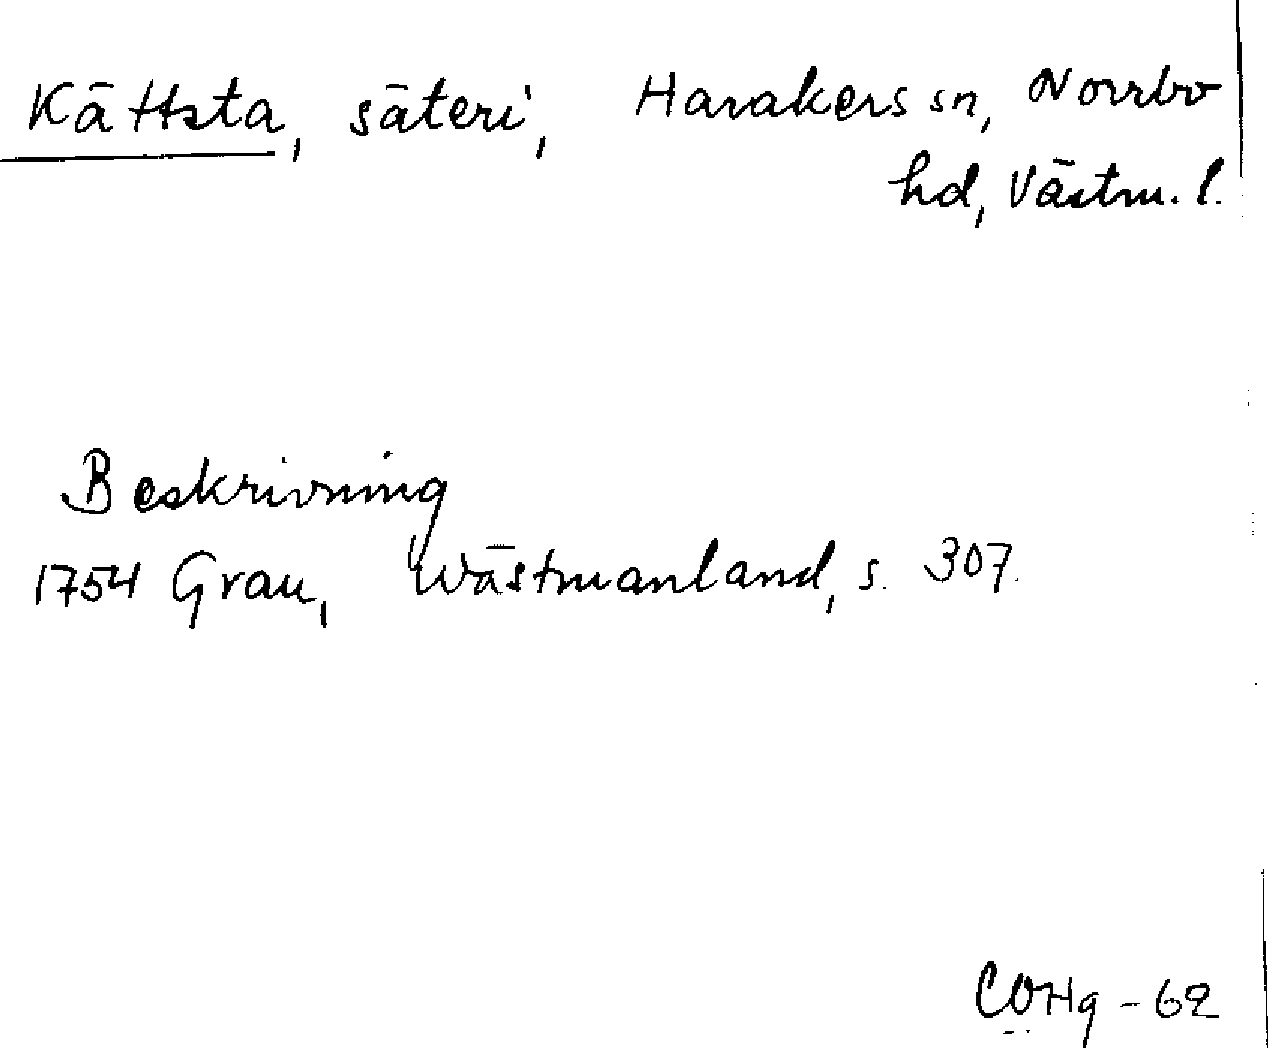 Kättsta, säteri, Harakers sn, Norrbo
hd, Västm. l.
Beskrivning
1754 Grau, Wästmanland, s. 307.
CÖHg - 62